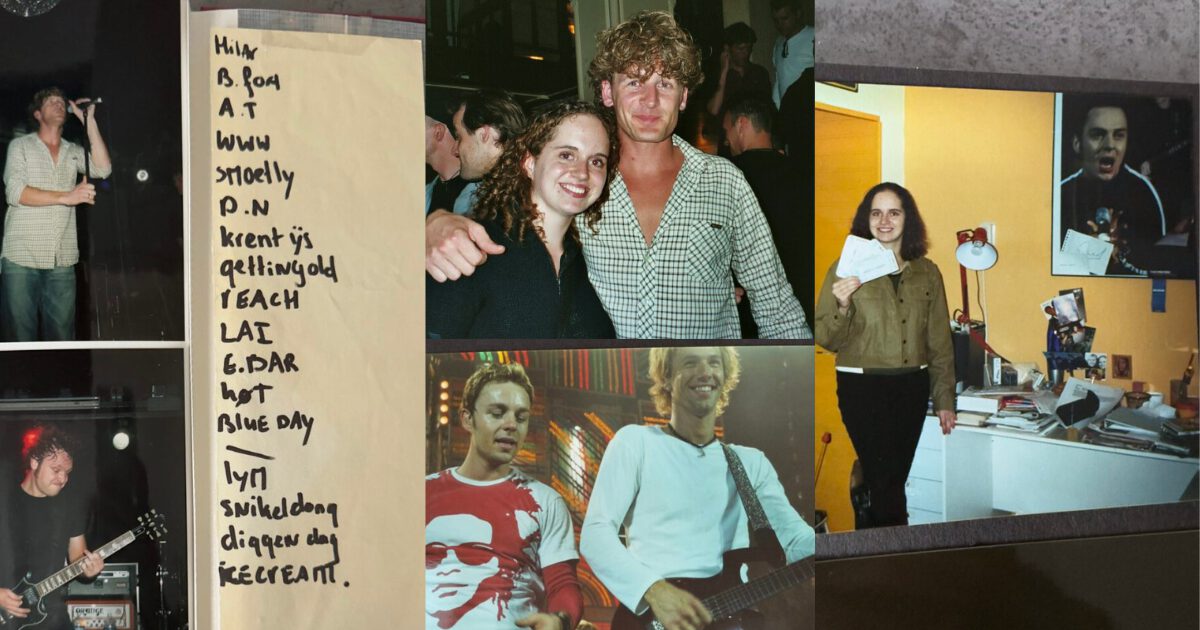 Milar
B. Rom
A.T
WWW
SMOElly
D.N
krent ijs
gettingold
rEACH
LAI
E.BAR
høt
BLUE DAY
lyM
snikeldong
diggen dag
icecream.
ORANGE